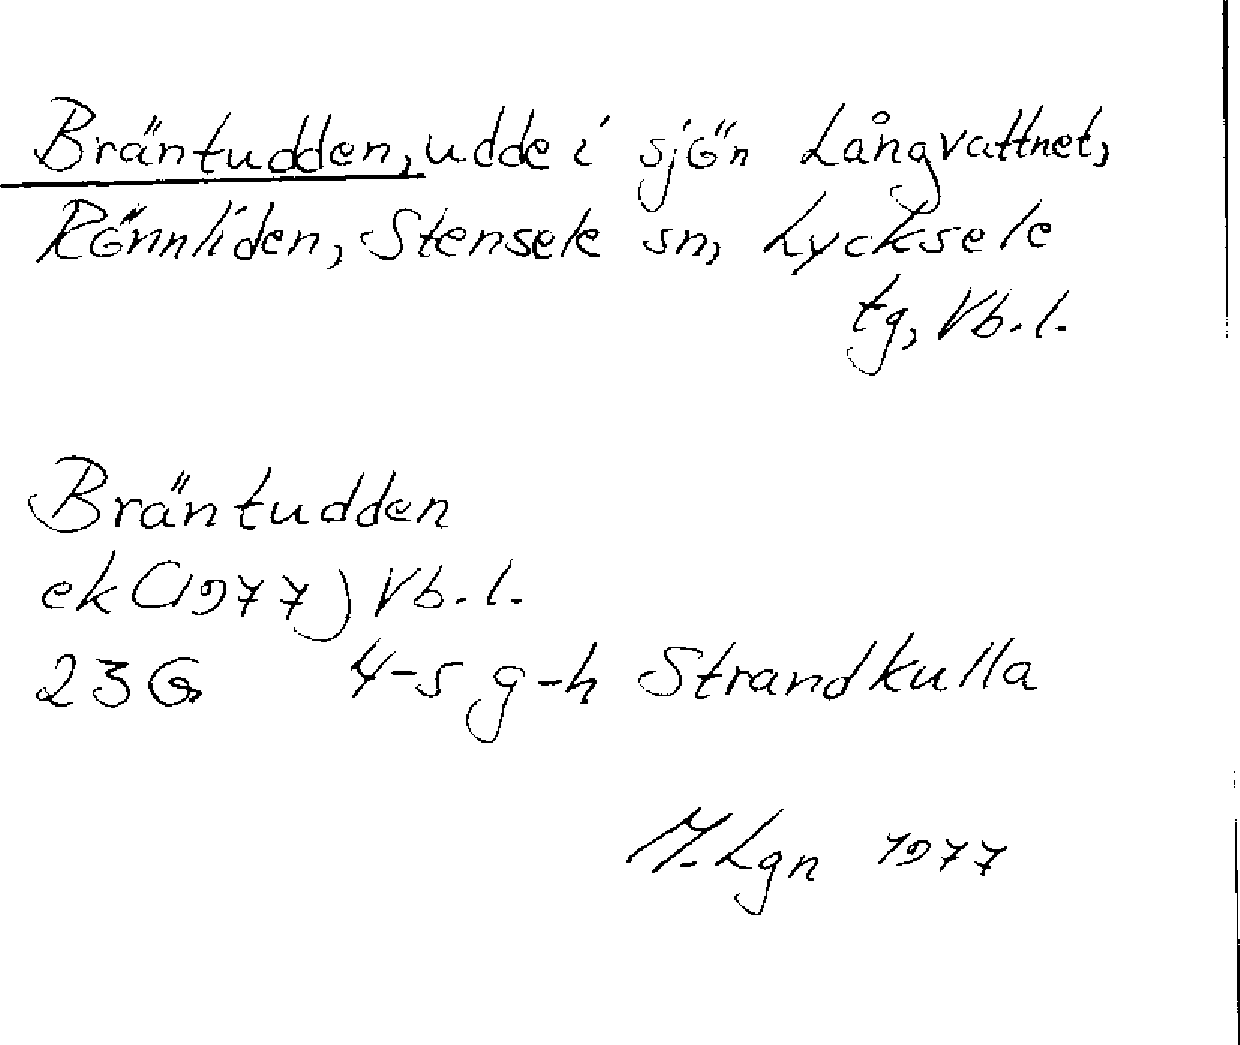 Bräntudden, udde i sjön Långvattnet,
Rönnliden, Stensele sn, Lycksele
tg, Vb. l.
Bräntudden
ek (1977) Vb. l.
23G 4-5 g-h Strandkulla
M. Lgn 1977